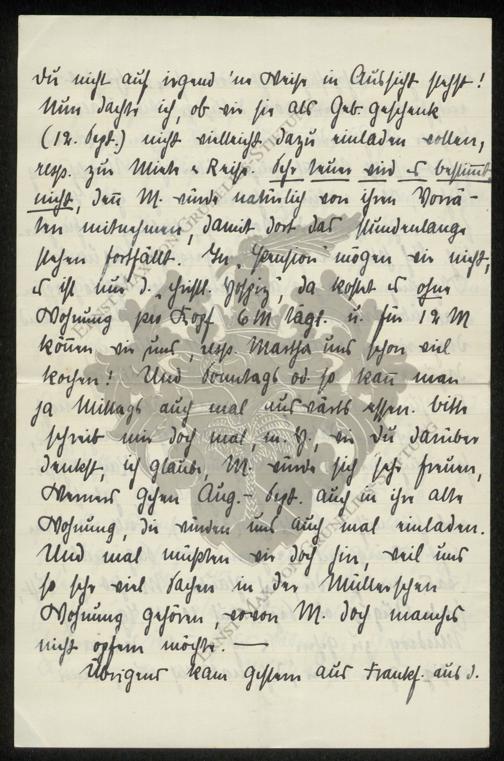 Du nicht auf irgend 'ne Weise in Aussicht stehst!
Nun dachte ich, ob wir sie als Geb. geschenk
(12. Sept.) nicht vielleicht dazu einladen wollen,
resp. zur Miete & Reise. Sehr teuer wird es bestimmt
nicht, denn M. würde natürlich von ihren Vorrä-
ten mitnehmen, damit dort das stundenlange
stehen fortfällt. In "Pension" mögen wir nicht,
es ist nur d. christl. Hospiz, da kostet es ohne
Wohnung pro Kopf 6 M tägl. u. für 12 M
können wir uns, resp. Martha uns schon viel
kochen! Und Sonntags od. so kann man
ja Mittags auch mal auswärts essen. Bitte
schreib mir doch mal, m. H., wie Du darüber
denkst, ich glaube, M. würde sich sehr freuen,
Werners gehen Aug.- Sept. auch in ihre alte
Wohnung, die würden uns auch mal einladen.
Und mal müßten wir doch hin, weil uns
so sehr viel Sachen in der Müllerschen
Wohnung gehören, wovon M. doch manches
nicht opfern möchte. —
Übrigens kam gestern aus Frankf. aus d.
ERNST MAX VON GRUNELIUS-STIFTUNG
ERNST MAX VON GRUNELIUS-STIFTUNG